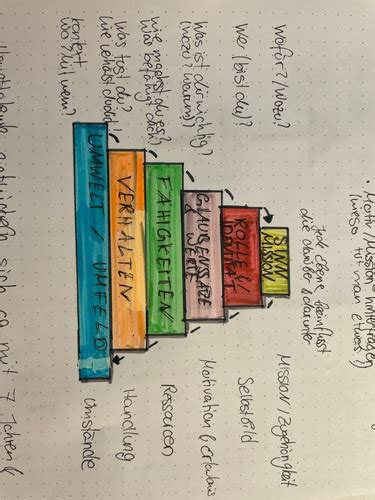 hinterfragen
(wieso tut man etwas)
Jede Ebene beeinflusst
die darüber & darunter
Wofür? / Wozu?
SINN
MISSION
Mission / Zugehörigkeit
Wer (bist du)?
ROLLE /
IDENTITÄT
Selbstbild
Was ist dir wichtig?
(Wozu? Warum?)
GLAUBENSSÄTZE
WERTE
Motivation & Erlaubnis
Wie machst du es?
(Was befähigt dich?)
FÄHIGKEITEN
Ressourcen
Was tust du?
Wie verhälst du dich?
VERHALTEN
Handlung
Kontext
Wo? Mit wem?
UMWELT / UMFELD
Umstände
entwickeln sich ca mit 7 Jahren (